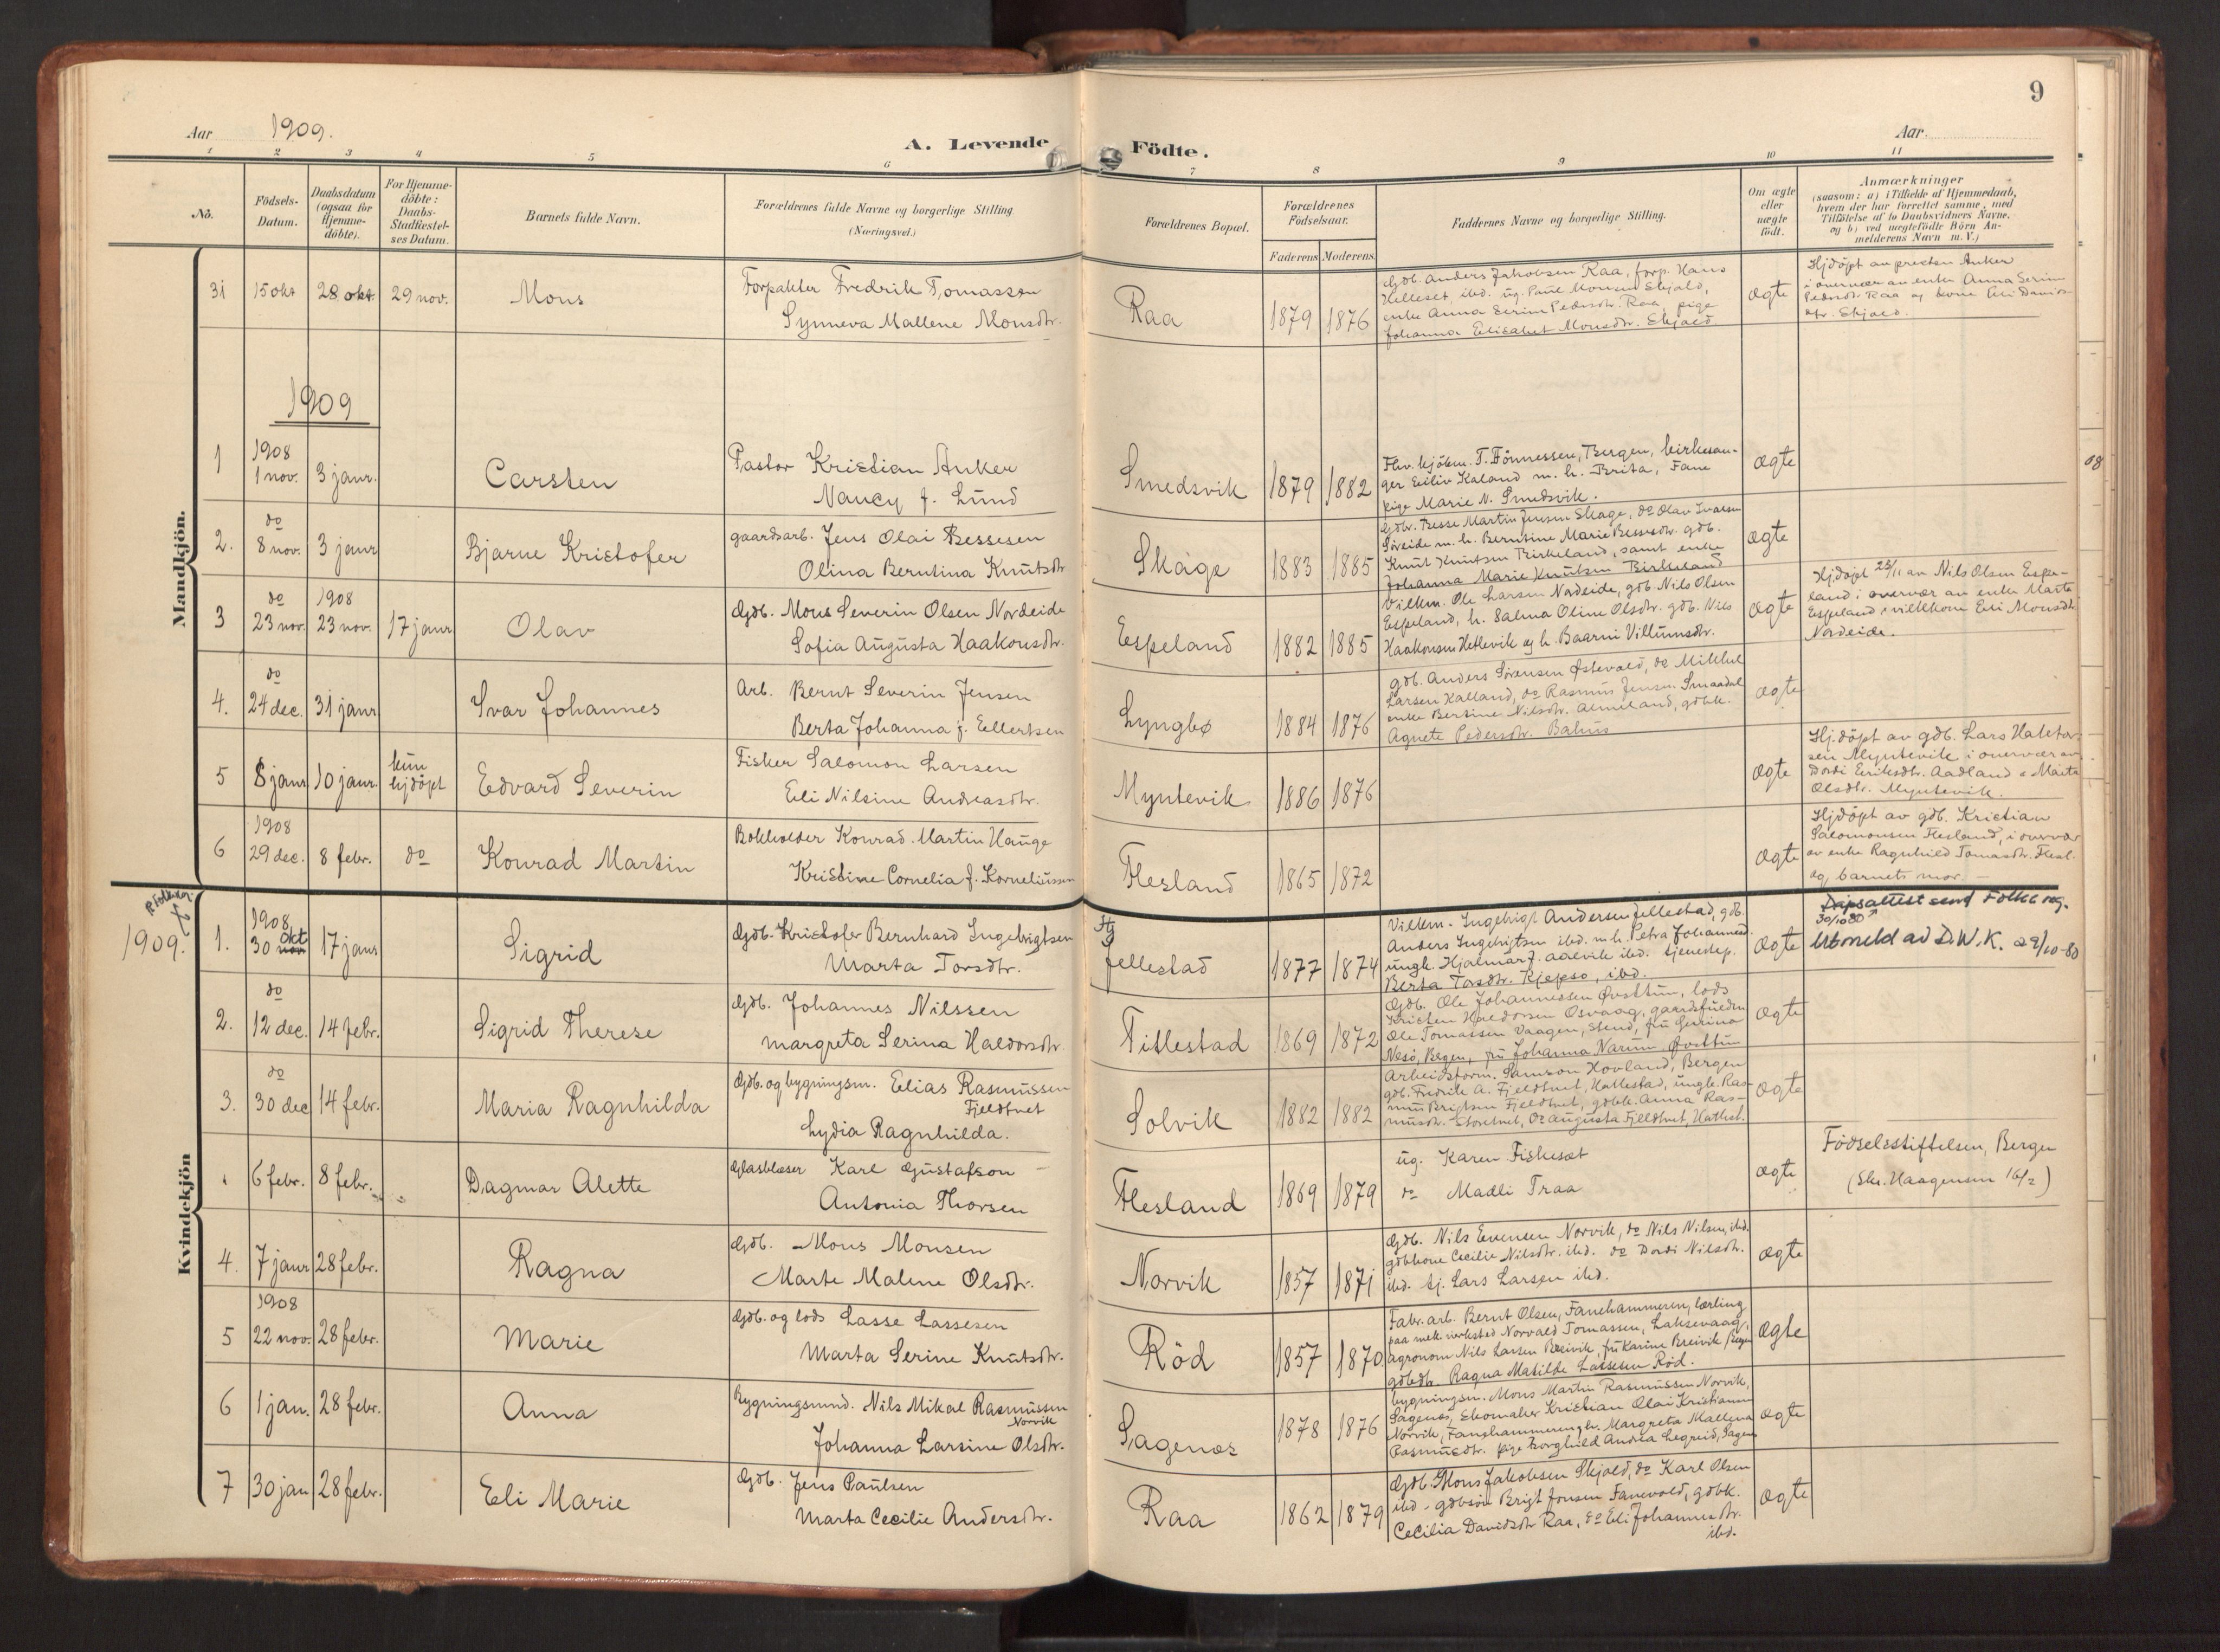 9
Aar 1909.
A. Levende Födte.
Aar.
1 2 3 4 5 6 7 8 9 10 11
No.
Födsels-
Datum.
Daabsdatum
(ogsaa for
Hjemme-
döbte).
For Hjemme-
döbte:
Daabs-
Stadfæstel-
ses Datum.
Barnets fulde Navn.
Forældrenes fulde Navne og borgerlige Stilling
(Næringsvei.)
Forældrenes Bopæl.
Forældrenes
Födselsaar.
Faderens Moderens
Faddernes Navne og borgerlige Stilling.
Om ægte
eller
uægte
födt.
Anmærkninger
(saasom: a) i Tilfælde af Hjemmedaab,
hvem der har forrettet samme, med
Tilföielse af to Daabsvidners Navne.
og b) ved uægtefödte Börn An-
melderens Navn m. V.)
Mandkjön.
31 15 okt 28 okt. 29 nov. Mons
Forpakter Fredrik Tomassen
Synneva Mallene Monsdtr.
Raa 1879 1876
Gdb. Anders Jakobsen Raa, forp. Hans
Helleset, ibd. ug. Paul Monsen Skjold,
enke Anna Serina Pedersdtr. Raa, pige
Johanna Elisabet Monsdtr. Skjold
ægte
Hjdöpt av presten Anker
i overvær av enke Anna Serina
Pedersdtr. Raa og kone Eli Davids-
dtr. Skjold.
1909
1 1908
1 nov. 3 janr. Carsten
Pastor Kristian Anker
Nancy f. Lund
Smedsvik 1879 1882
Fhv. kjöbm. T. Fönnessen, Bergen, kirkesan-
ger Eiliv Kaland m. h. Brita, Fane
pige Marie N. Smedsvik.
ægte
2. do
8 nov. 3 janr Bjarne Kristofer
gaardsarb. Jens Olai Bessesen
Olina Berntina Knutsdtr
Skage 1883 1885
Gdbr. Besse Martin Jensen Skage, do Olav Ivarsen
Söreide m. h. Berntine Marie Bessesdtr. gdb.
Knut Knutsen Birkeland, samt enke
Johanna Marie Knutsen Birkeland
ægte
3 do 1908
23 nov. 23 nov. 17 janr Olav
Gdb. Mons Severin Olsen Nordeide
Sofia Augusta Haakonsdtr.
Espeland 1882 1885
Vilkm. Ole Larsen Nadeide, gdb Nils Olsen
Espeland, h. Salma Oline Olsdtr. gdb. Nils
Haakonsen Hetlevik og h. Baarni Villumsdtr.
ægte
Hjdöpt 25/11 av Nils Olsen Espe-
land i overvær av enke Marta
Espeland & vilkkone Eli Monsdtr
Nadeide.
4. do
24 dec. 31 janr Ivar Johannes
Arb. Bernt Severin Jensen
Berta Johanna f. Ellertsen
Lyngbø 1884 1876
gdb. Anders Sörensen Østevold, do Mikkel
Larsen Kalland, do Rasmus Jensen Smaadal
enke Bertine Nilsdtr. Almeland, gdbk.
Agnete Pedersdtr. Balnis
ægte
5 8 janr 10 janr. kun
hjdöpt Edvard Severin
Fisker Salomon Larsen
Eli Nilsine Andreasdtr.
Myntevik 1886 1876
ægte
Hj.döpt av gdb. Lars Haktor-
sen Myntevik i overvær av
Dordi Eriksdtr. Aadland & Marta
Olsdtr. Myntevik.
6 1908
29 dec. 8 febr. do Konrad Martin
Bokholder Konrad Martin Hauge
Kristine Cornelia f. Korneliussen
Flesland 1865 1872
ægte
Hjdöpt av gdb. Kristian
Salomonsen Flesland, i overvær
av enke Ragnhild Tomasdtr. Flesl.
og barnets mor. —
Kvindekjön
1909.
1. 1908
30 okt
nov 17 janr Sigrid
Gdb. Kristofer Bernhard Ingebrigtsen
Marta Torsdtr.
Hj
fellestad 1877 1874
Vilkm. Ingebrigt Andersen fellestad, gdb.
Anders Ingebrigtsen ibd. m. h. Petra Johannesd.
ungk. Hjalmar J. Aalvik ibd. tjenestep.
Berta Torsdtr. Kjepso, ibd.
ægte
Dåpsattest send Folkereg.
30/10 80
Utmeld av D.N.K. 29/10-80
2. do
12 dec. 14 febr. Sigrid Therese
Gdb. Johannes Nilssen
Margreta Serina Haldorsdtr.
Titlestad 1869 1872
Gdb. Ole Johannessen Øvsttun, lods
Kristen Haldorsen Osvaag, gaardsfuldm
Ole Tomassen Vaagen, Stend, fru Serina
Nesö, Bergen, fru Johanna Narum Øvsttun
ægte
3. do
30 dec 14 febr. Maria Ragnhilda
Gdb. og bygningsm. Elias Rasmussen
Fjeldtuet
Lydia Ragnhilda.
Solvik 1882 1882
Arbeidsform. Samson Hovland, Bergen
gdb. Fredrik A. Fjeldtuet, Hatlestad, ungk. Ras-
mus Brigtsen Fjeldtuet, gdbk. Anna Ras-
musdtr. Storetuet, do Augusta Fjeldtuet, Hatlest.
ægte
6 febr. 8 febr. Dagmar Alette
Glasblæser Karl Gustafson
Antonia Thorsen
Flesland 1869 1879
ug. Karen Fiskeset
do Madli Traa
ægte
Födselsstiftelsen, Bergen
(Skr. Haagensen 16/2)
4. 7 janr 28 febr. Ragna
Gdb. Mons Monsen
Marte Malene Olsdtr.
Norvik 1857 1871
Gdb. Nils Evensen Norvik, do Nils Nilsen, ibd.
gdbkone Cecilie Nilsdtr. ibd. do Dordi Nilsdtr.
ibd. tj. Lars Larsen ibd.
ægte
5 1908
22 nov. 28 febr. Marie
Gdb. og lods Lasse Lassesen
Marta Serine Knutsdtr.
Röd 1857 1870
Fabr.arb. Bernt Olsen, Fanehammeren, lærling
paa mek. verksted Norvald Tomassen, Laksevaag,
agronom Nils Larsen Breivik, fru Karine Breivik, Bergen
gdbdtr. Ragna Matilde Lassesen Röd.
ægte
6 1 jan. 28 febr. Anna
Bygningsmd. Nils Mikal Rasmussen
Norvik
Johanna Larsine Olsdtr.
Sagenes 1878 1876
bygningsm. Mons Martin Rasmussen Norvik,
Sagenes, skomaker Kristian Olai Kristiansen
Norvik, Fanehammeren, gk. Margreta Mallena
Rasmusdtr. pige Borghild Andrea Legreid, Sagen
ægte
7 30 jan 28 febr. Eli Marie
Gdb. Jens Paulsen
Marta Cecilie Andersdtr.
Raa 1862 1879
Gdb. Mons Jakobsen Skjold, do Karl Olsen
ibd - gdbsön Brigt Jonsen Fanevold, gdbk.
Cecilia Davidsdtr Raa, do Eli Johannesdtr.
ibd.
ægte
08